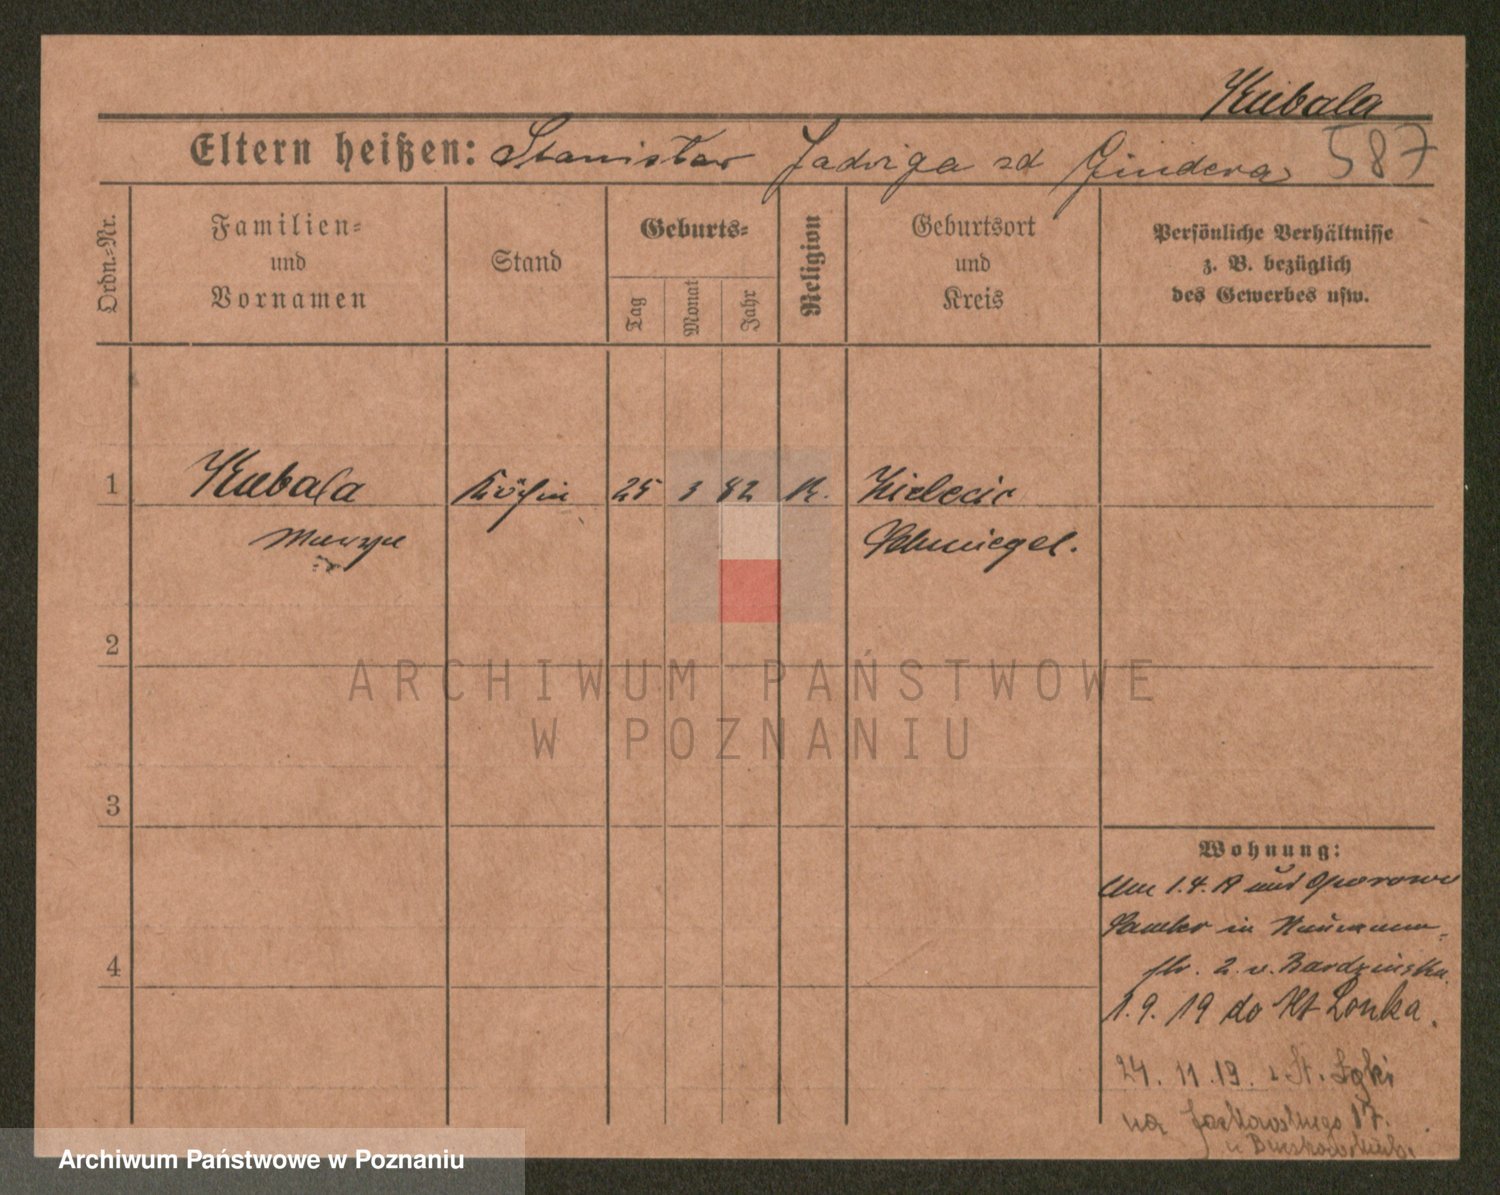 Kubala
Eltern heißen: Stanisław Jadwiga zd Gindera 587
Ordn.-Nr.
Familien-
und
Vornamen
Stand
Geburts-
Tag
Monat
Jahr
Religion
Geburtsort
und
Kreis
Persönliche Verhältnisse
z. B. bezüglich
des Gewerbes usw.
1 Kubala Köchin 25 3 82 K.
Schmiegel.
2
ARCHIWUM PAŃSTWOWE
W POZNANIU
3
Wohnung:
1.4.19 aus Oporowo
Samter in Naumann-
str. 2. v. Bardzinska.
4
1.9.19 do Łonka.
24. 11. 19. z St. Łąki
na Jackowskiego 17.
Archiwum Państwowe w Poznaniu